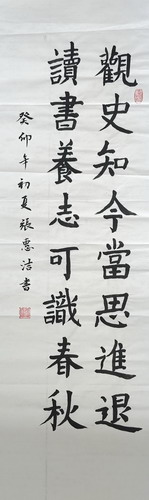 觀史知今當思進退
讀書養志可識春秋
癸卯年初夏張惠洁書